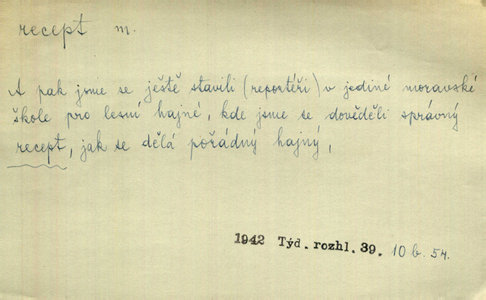 recept m.
A pak jsme se ještě stavili (reportéři) v jediné moravské
škole pro lesní hajné, kde jsme se dověděli správný
recept, jak se dělá pořádný hajný.
1942 Týd. rozhl. 39. 10 b. 54.